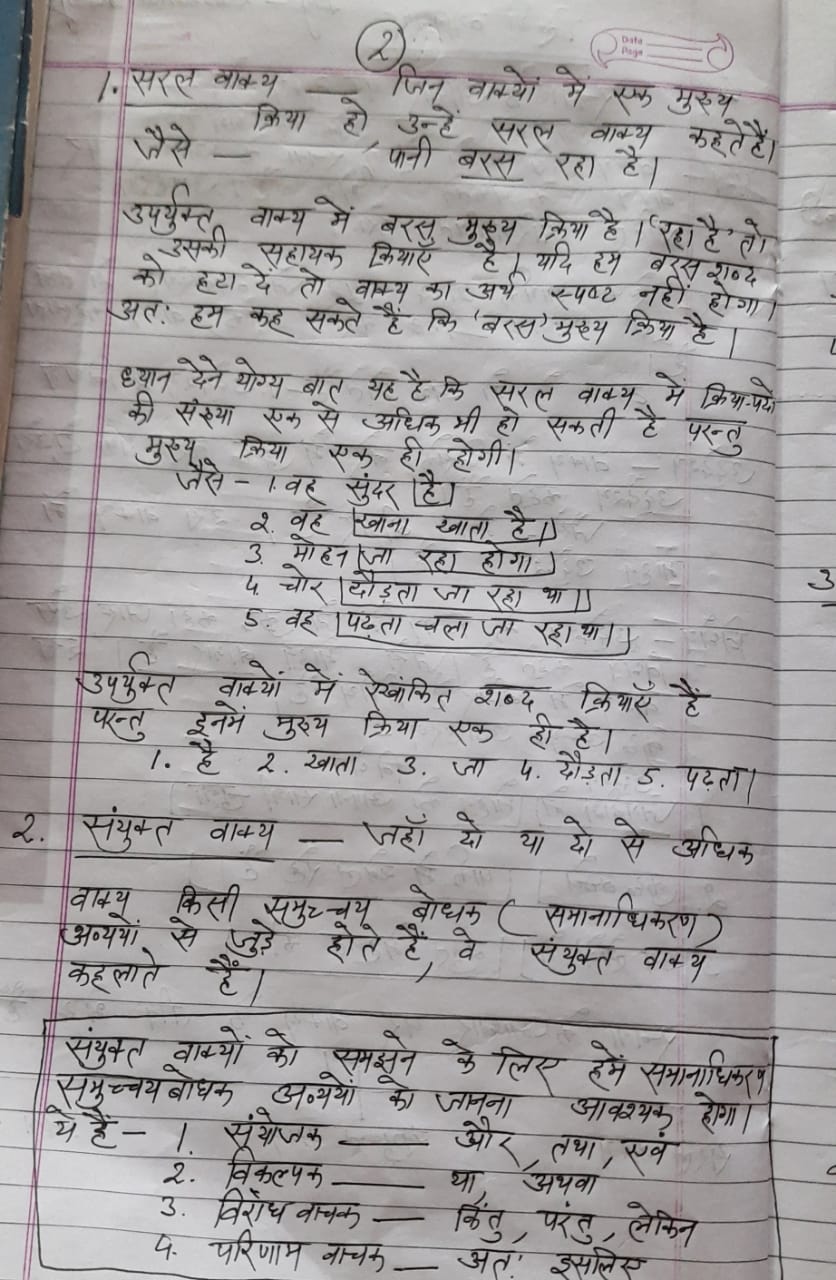 2
Date
Page
1. सरल वाक्य — जिन वाक्यों में एक मुख्य
क्रिया हो, उन्हें सरल वाक्य कहते हैं।
जैसे — पानी बरस रहा है।
उपर्युक्त वाक्य में बरस मुख्य क्रिया है। 'रहा है' तो
उसकी सहायक क्रियाएँ हैं। यदि हम बरस शब्द
को हटा दें तो वाक्य का अर्थ स्पष्ट नहीं होगा।
अतः हम कह सकते हैं कि 'बरस' मुख्य क्रिया है।
ध्यान देने योग्य बात यह है कि सरल वाक्य में क्रिया-पदों
की संख्या एक से अधिक भी हो सकती है परन्तु
मुख्य क्रिया एक ही होगी।
जैसे – 1. वह सुंदर है।
2. वह खाना खाता है।
3. मोहन जा रहा होगा।
4. चोर दौड़ता जा रहा था।
5. वह पढ़ता चला जा रहा था।
उपर्युक्त वाक्यों में रेखांकित शब्द क्रियाएँ हैं
परन्तु इनमें मुख्य क्रिया एक ही है।
1. है 2. खाता 3. जा 4. दौड़ता 5. पढ़ता।
2. संयुक्त वाक्य — जहाँ दो या दो से अधिक
वाक्य किसी समुच्चय बोधक (समानाधिकरण)
अव्ययों से जुड़े होते हैं, वे संयुक्त वाक्य
कहलाते हैं।
संयुक्त वाक्यों को समझने के लिए हमें समानाधिकरण
समुच्चयबोधक अव्ययों को जानना आवश्यक होगा।
ये हैं – 1. संयोजक — और, तथा, एवं
2. विकल्पक — या, अथवा
3. विरोध वाचक — किंतु, परंतु, लेकिन
4. परिणाम वाचक — अतः इसलिए
3